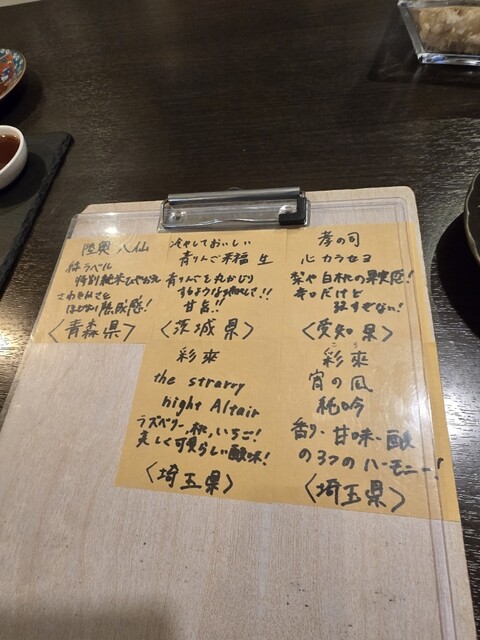 陸奥八仙
赤ラベル
特別純米ひやおろし
さわやかさと
ほどよい熟成感!
〈青森県〉
冷やしておいしい
青りんご来福 生
青りんごを丸かじり
するような
甘旨!!
〈茨城県〉
孝の司
心 カラセヨ
梨や白桃の果実感!
辛口だけど
辛すぎない!
〈愛知県〉
彩來
the strarry
night Altair
ラズベリー、桃、いちご!
美しく可愛らしい酸味!
〈埼玉県〉
さら
彩來
宵の凪
純吟
香り・甘味・酸
の3つのハーモニー!
〈埼玉県〉